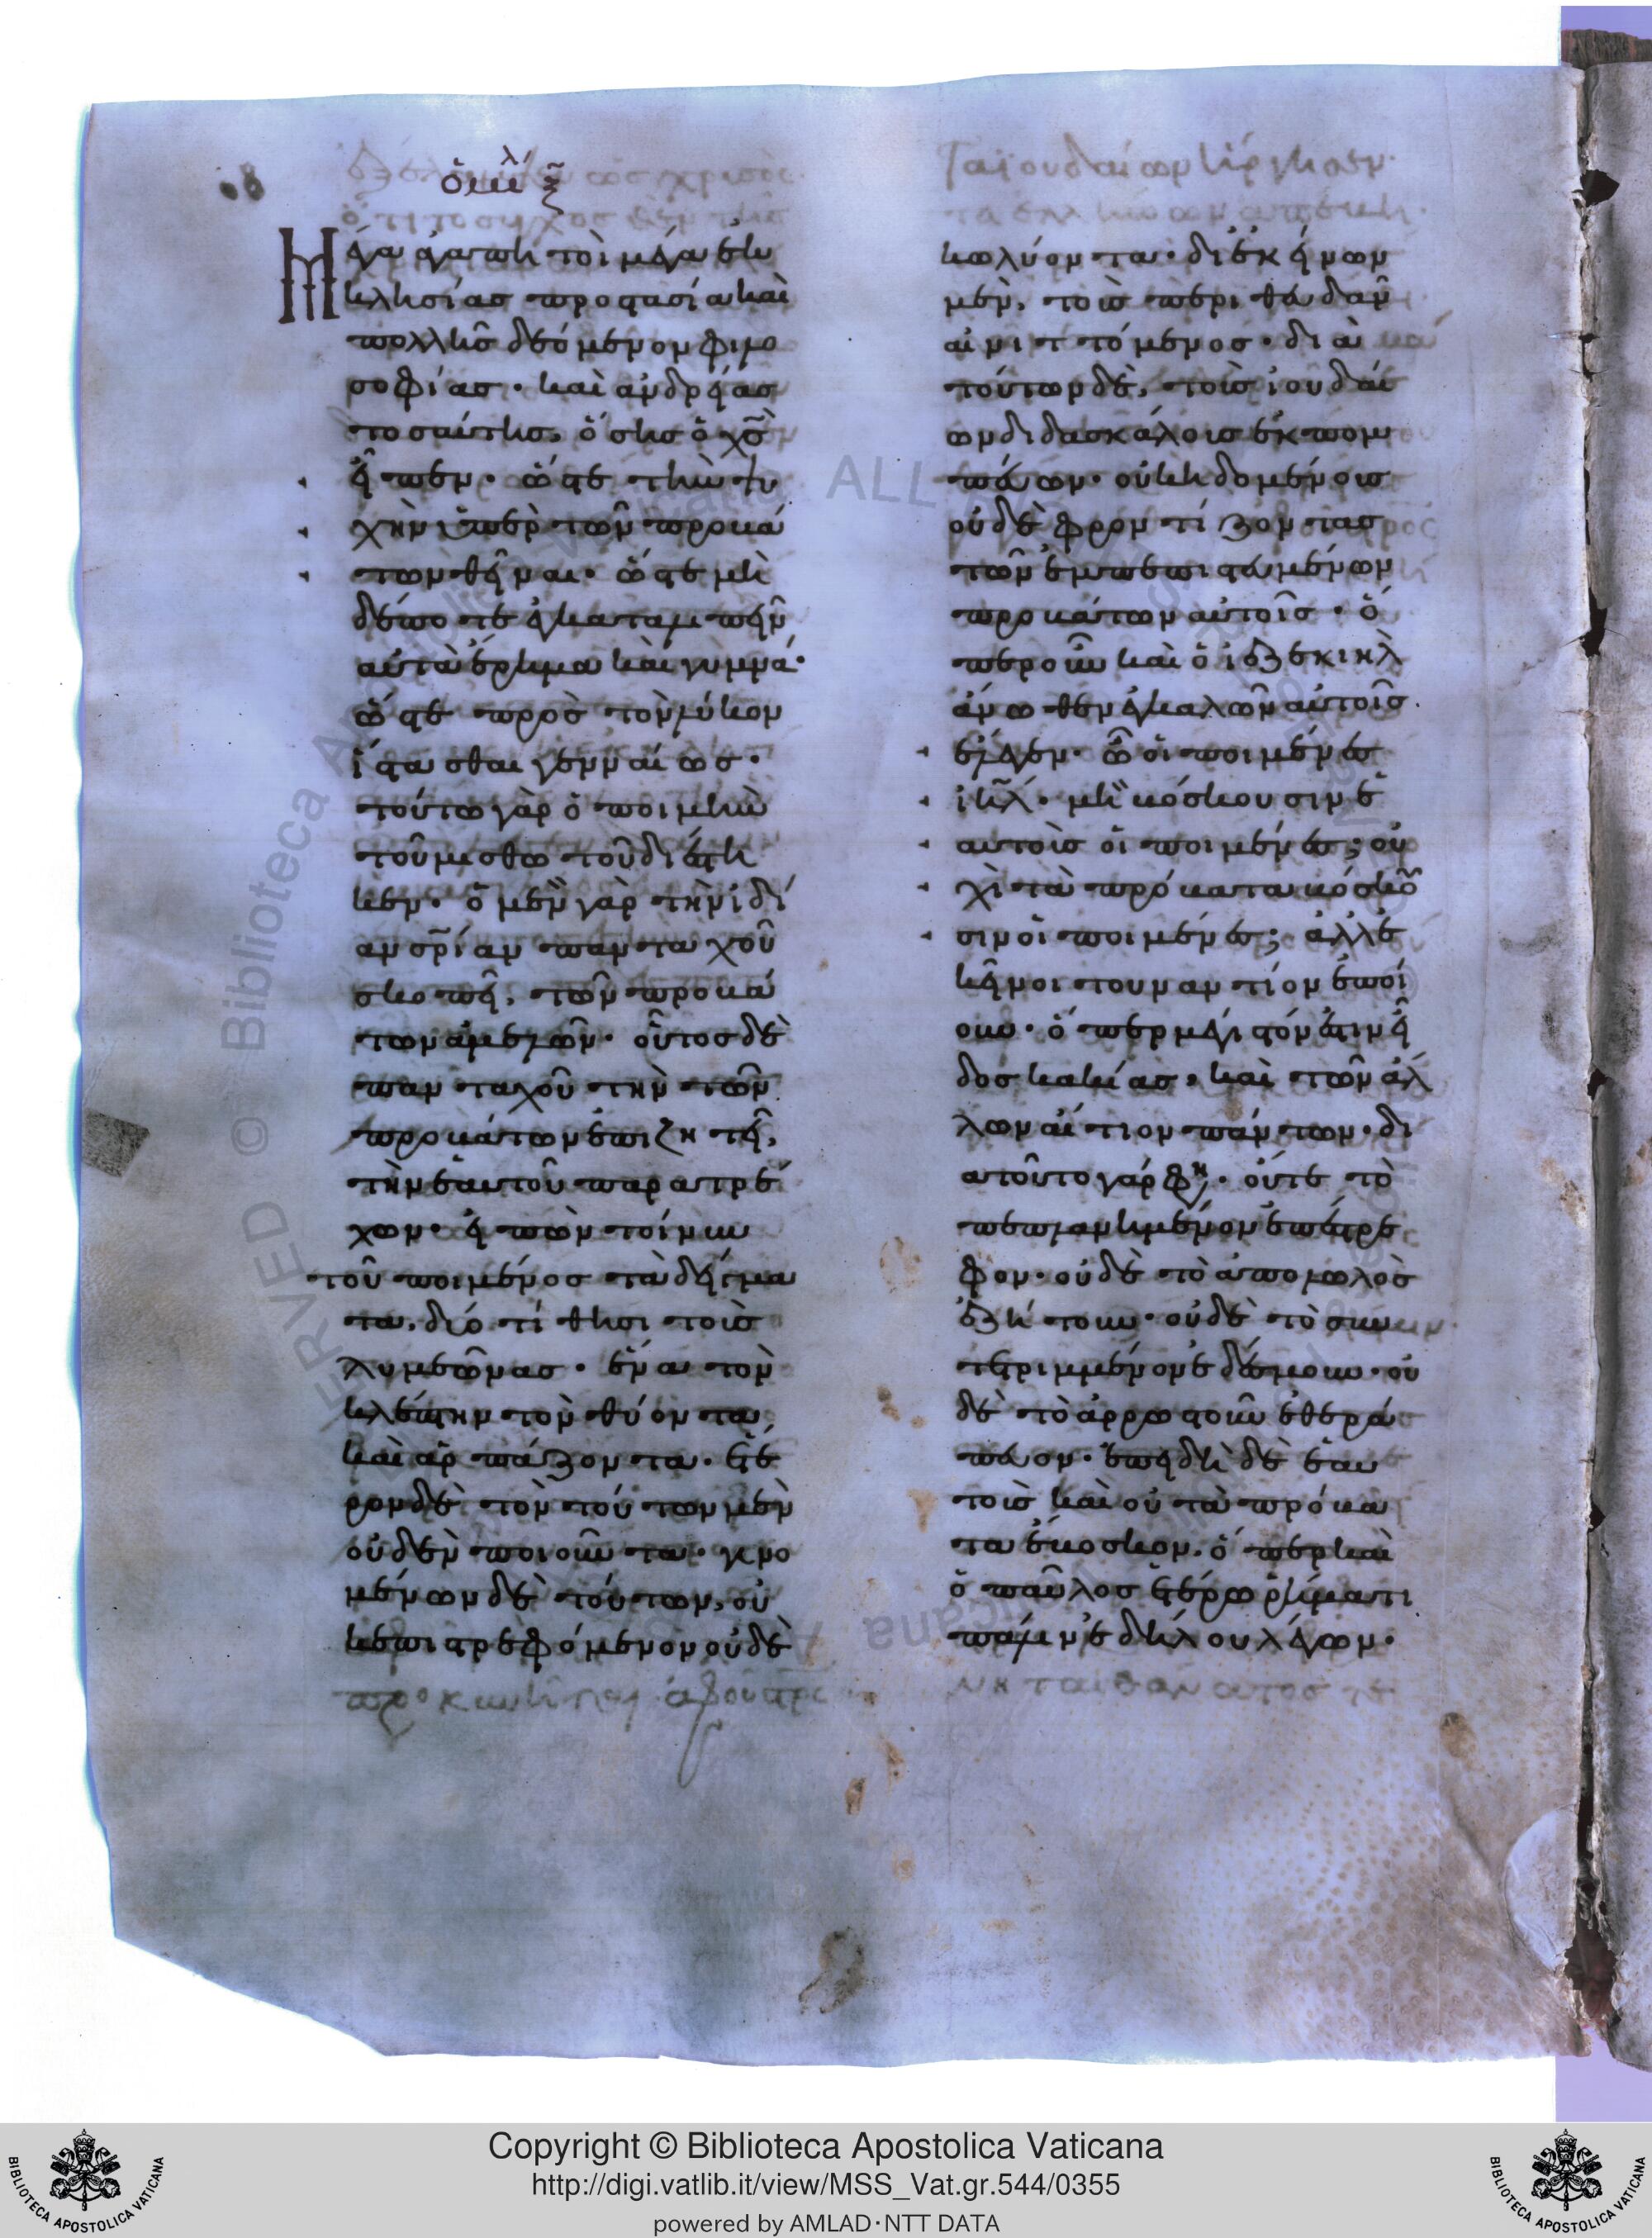 ὁμιλ ξ
Μέγα ἀγαπητοὶ μέγα ἐκ
κλησίας προστασία καὶ
πολλῆς δεόμενον φιλο
σοφίας· καὶ ἀνδρείας
τοσαύτης, ὅσης ὁ χς
εἶπεν· ὥστε τὴν ψυ
χὴν ὑπὲρ τῶν προβά
των θεῖναι· ὥστε μη
δέποτε ἐγκαταλιπεῖν
αὐτὰ ἔρημα καὶ γυμνά·
ὥστε πρὸς τὸν λύκον
ἵστασθαι γενναίως·
τούτω γὰρ ὁ ποιμὴν
τοῦ μισθωτοῦ διέστη
κεν· ὁ μὲν γὰρ τὴν ἰδί
αν σρίαν πανταχοῦ
σκοπεῖ, τῶν προβά
των ἀμελῶν· οὗτος δὲ
πανταχοῦ τὴν τῶν
προβάτων ἐπιζητεῖ,
τὴν ἑαυτοῦ παρατρέ
χων· εἰπὼν τοίνυν
τοῦ ποιμένος τὰ δείγμα
τα, δύο τίθησι τοὺς
λυμεῶνας· ἕνα τὸν
κλέπτην τὸν θύοντα
καὶ ἁρπάζοντα· ἕτε
ρον δὲ τὸν τούτων μὲν
οὐδὲν ποιοῦντα· γινο
μένων δὲ τούτων, οὐ
κ ἐπιστρεφόμενον οὐδὲ
κωλύοντα· δι ἐκείνων
μὲν, τοὺς περι θευδᾶν
αἰνιττόμενος· διὰ
τούτων δὲ, τοὺς ἰουδαί
ων διδασκάλους ἐκπομ
πεύων· οὐ κηδομένους
οὐδὲ φροντίζοντας
τῶν ἐμπεπιστευμένων
προβάτων αὐτοῖς· ὅ
περ οὖν καὶ ὁ ἰεζεκιὴλ
ἄνωθεν ἐγκαλῶν αὐτοῖς
ἔλεγεν· ὦ οἱ ποιμένες
ιηλ· μὴ βόσκουσιν ἑ
αυτοὺς οἱ ποιμένες; οὐ
χὶ τὰ πρόβατα βόσκου
σιν οἱ ποιμένες; ἀλλ ἐ
κεῖνοι τουναντίον ἐποί
ουν· ὅπερ μέγιστόν ἐστιν εἶ
δος κακίας, καὶ τῶν ἄλ
λων αἴτιον πάντων· δι
ὰ τοῦτο γάρ φη· οὔτε τὸ
πεπλανημένον ἐπέστρε
φον· οὐδὲ τὸ ἀπολωλὸς
ἐζήτουν· οὐδὲ τὸ συν
τετριμμένον ἐδέσμουν· οὐ
δὲ τὸ ἀρρωστοῦν ἐθερά
πευον· ἐπειδὴ δὲ ἑαυ
τοὺς καὶ οὐ τὰ πρόβα
τα ἔβοσκον, ὅπερ καὶ
ὁ παῦλος ἑτέρω ῥήματι
πάλιν ἐδήλου λέγων·
Copyright © Biblioteca Apostolica Vaticana
http://digi.vatlib.it/view/MSS_Vat.gr.544/0355
powered by AMLAD·NTT DATA
BIBLIOTECA APOSTOLICA VATICANA
BIBLIOTECA APOSTOLICA VATICANA